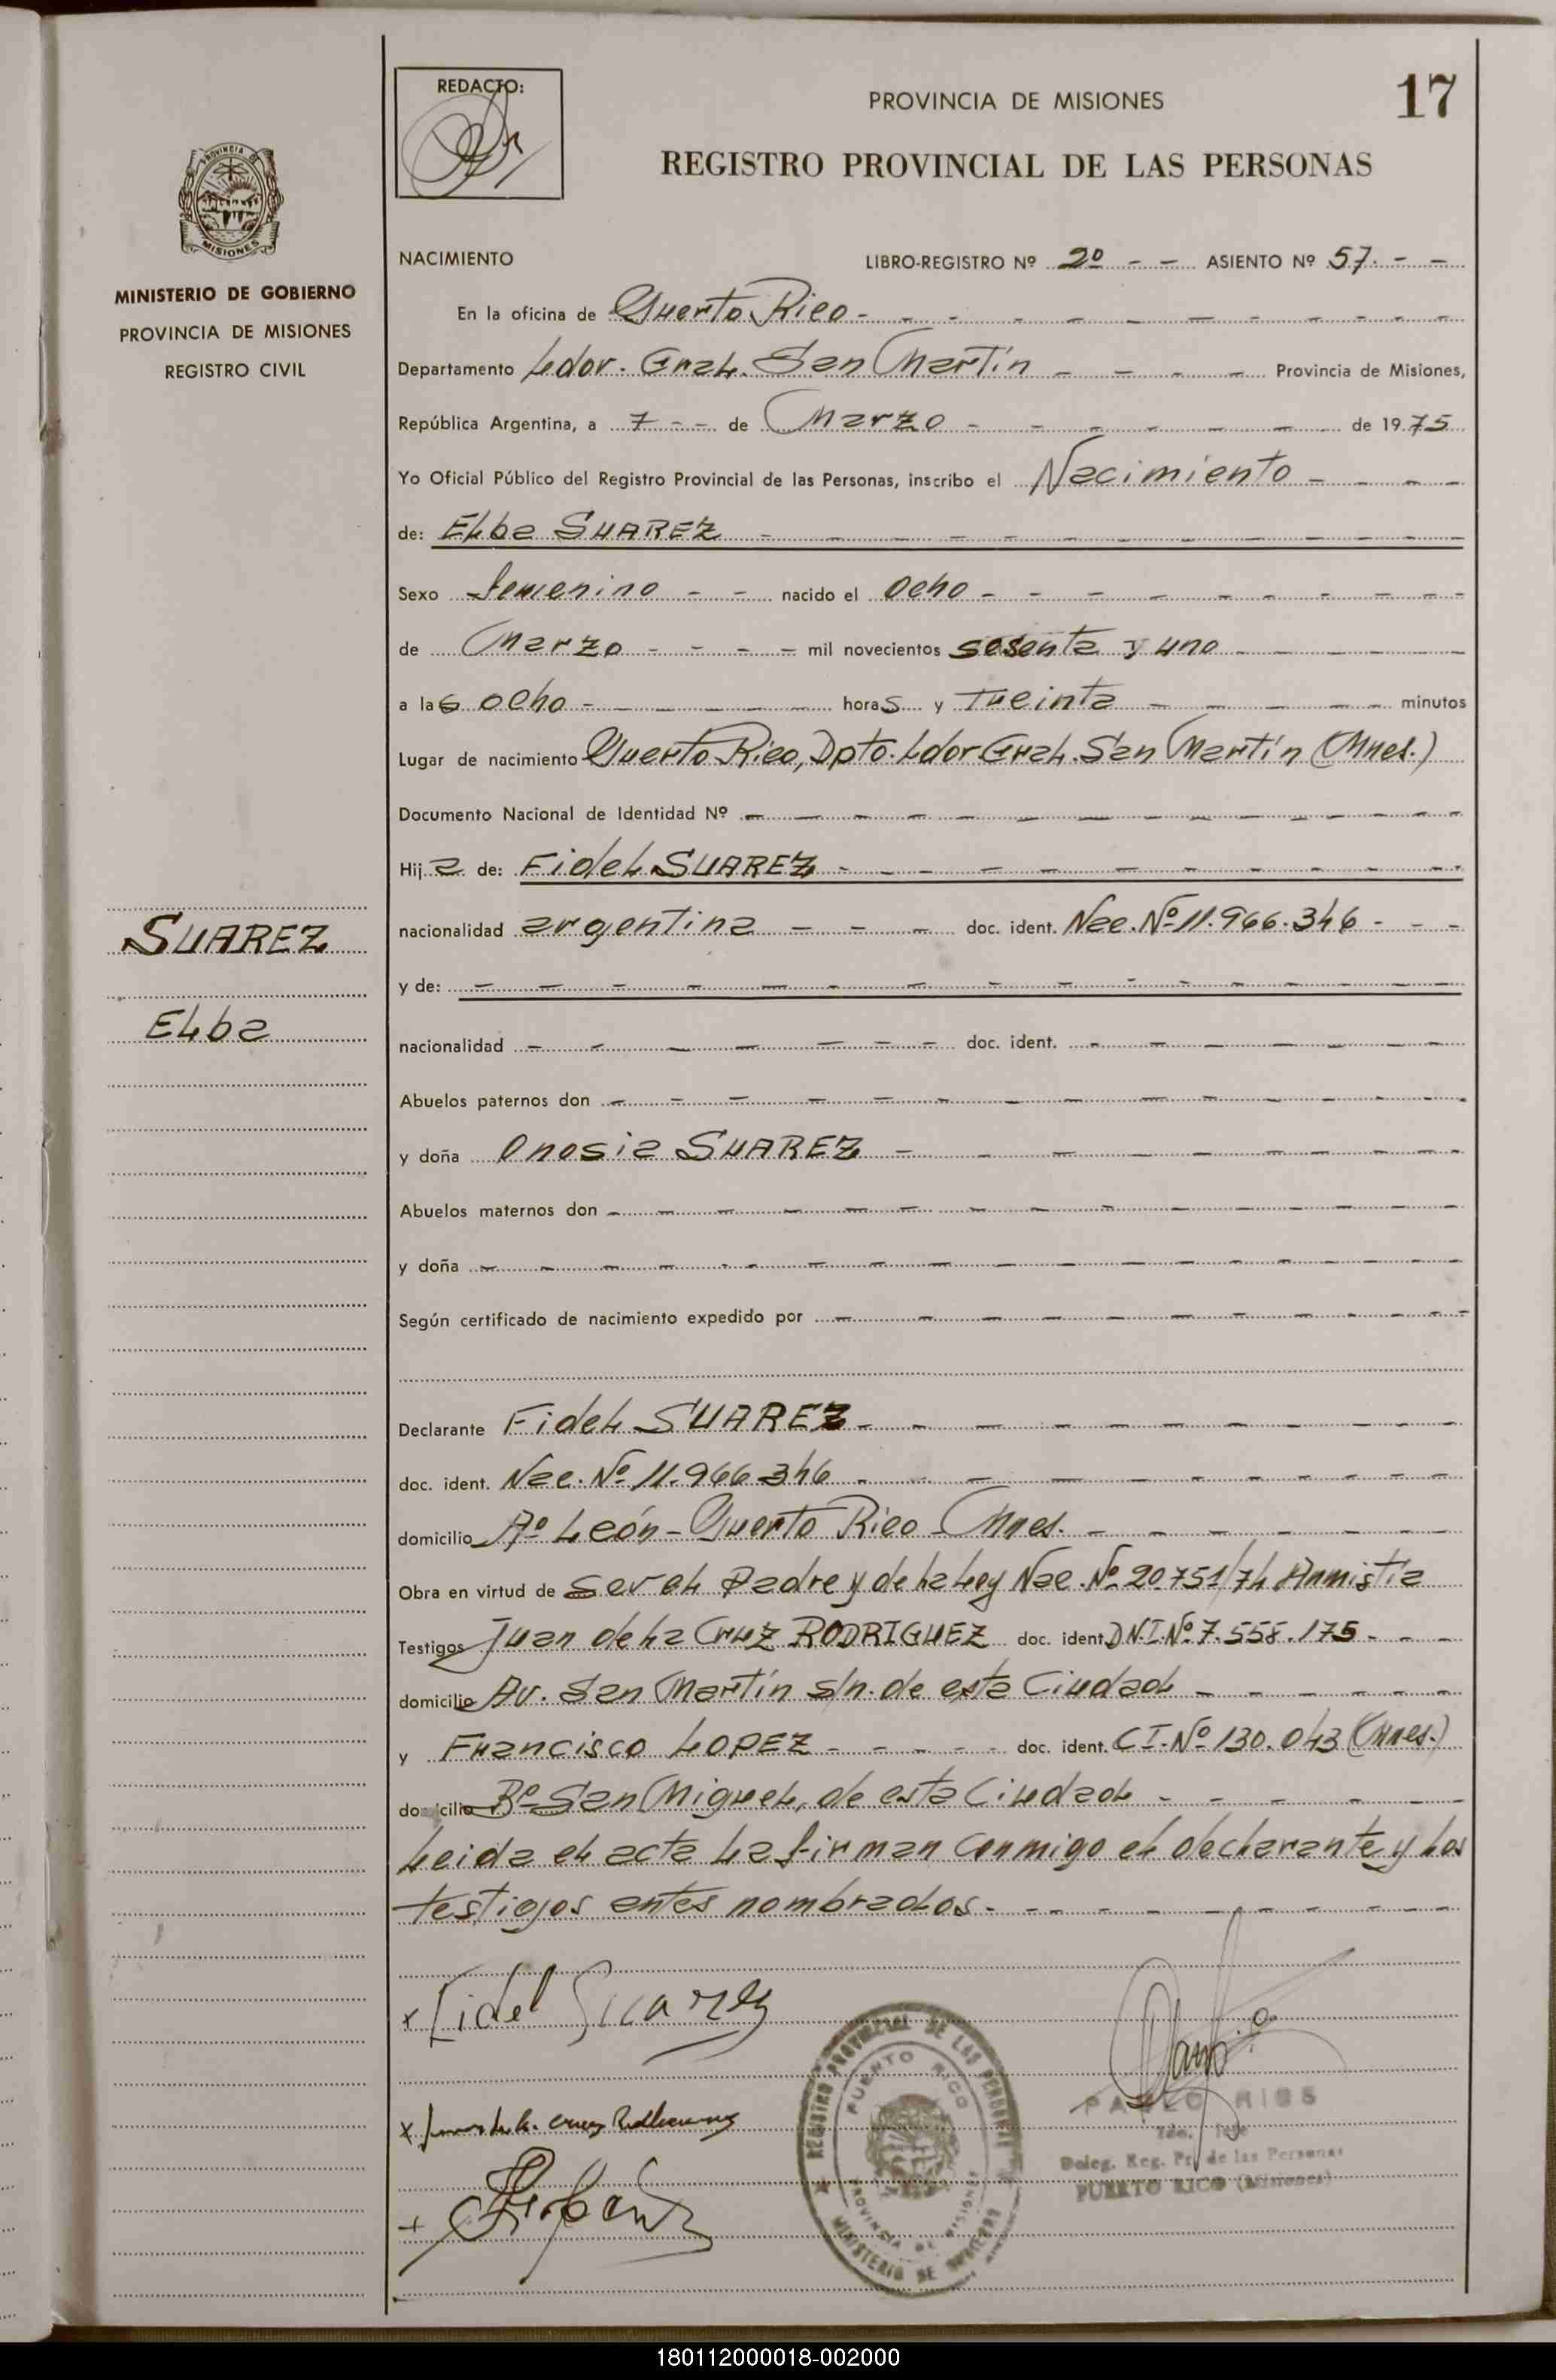 17
REDACTO:
PROVINCIA DE MISIONES
REGISTRO PROVINCIAL DE LAS PERSONAS
PROVINCIA DE
MISIONES
MINISTERIO DE GOBIERNO
PROVINCIA DE MISIONES
REGISTRO CIVIL
NACIMIENTO LIBRO-REGISTRO Nº 2º - - ASIENTO Nº 57. - -
En la oficina de Puerto Rico -
Departamento Ldor. Gral. San Martín - Provincia de Misiones,
República Argentina, a 7 - - de Marzo - de 1975
Yo Oficial Público del Registro Provincial de las Personas, inscribo el Nacimiento -
de: Elba SUAREZ -
Sexo femenino - - nacido el ocho -
de Marzo - mil novecientos sesenta y uno -
a las ocho - horas y treinta - minutos
Lugar de nacimiento Puerto Rico, Dpto. Ldor Gral. San Martín (Mnes.)
Documento Nacional de Identidad Nº -
Hija de: Fidel SUAREZ -
nacionalidad argentina - doc. ident. Nac. Nº 11.966.346 -
y de: -
nacionalidad - doc. ident. -
Abuelos paternos don -
y doña Onosia SUAREZ -
Abuelos maternos don -
y doña -
Según certificado de nacimiento expedido por -
SUAREZ
Elba
Declarante Fidel SUAREZ -
doc. ident. Nac. Nº 11.966.346 -
domicilio Aº León - Puerto Rico Mnes. -
Obra en virtud de ser el Padre y de la Ley Nac. Nº 20751/74 Amnistia
Testigos Juan de la Cruz RODRIGUEZ doc. ident. D.N.I. Nº 7.558.175 -
domicilio Av. San Martín s/n. de esta Ciudad -
y Francisco LOPEZ - doc. ident. C I. Nº 130.043 (Mnes.)
domicilio Bº San Miguel, de esta Ciudad -
Leida el acta la firman conmigo el declarante y los
testigos antes nombrados. -
x Fidel Suarez
x
REGISTRO PROVINCIAL DE LAS PERSONAS
PUERTO RICO
PROVINCIA DE MISIONES
MINISTERIO DE GOBIERNO
PABLO RIOS
Deleg. Reg. Pr. de las Personas
PUERTO RICO (Misiones)
180112000018-002000